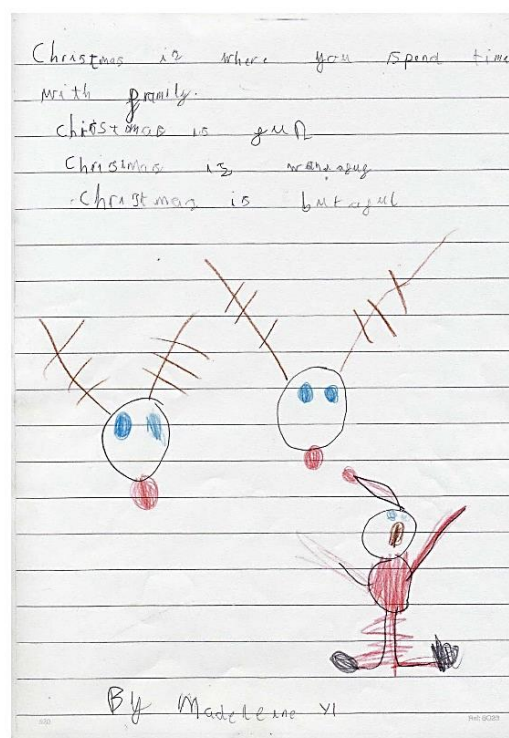 Christmas is where you spend time
with family.
Christmas is fun
Christmas is
Christmas is butaful
By Madeleine Y1